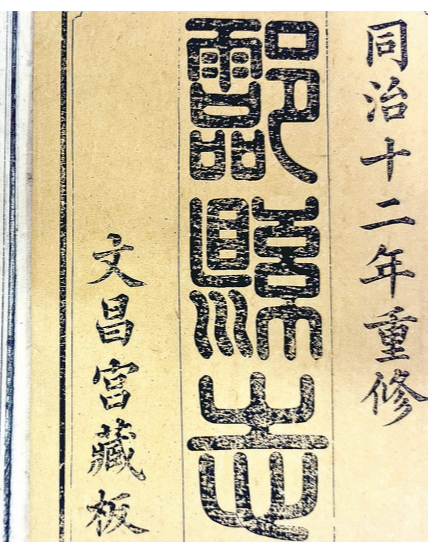 同治十二年重修
酃縣志
文昌宮藏板